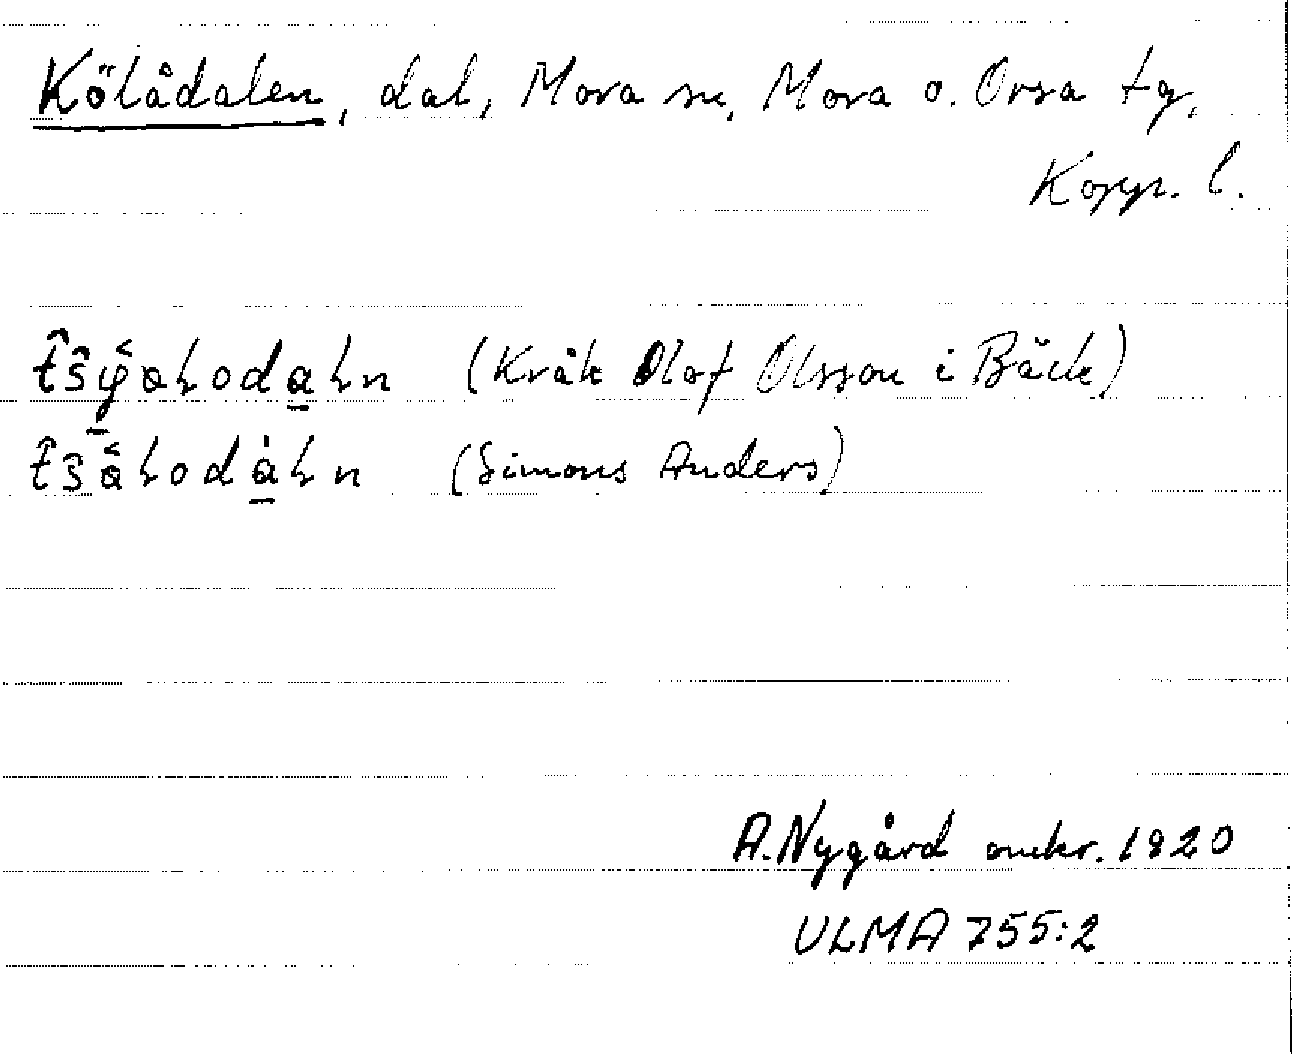 Kölådalen, dal, Mora sn, Mora o. Orsa tg,
Kopp. l.
(Kråk Olof Olsson i Bäck)
(Simons Anders)
A. Nygård omkr. 1920
ULMA 755:2